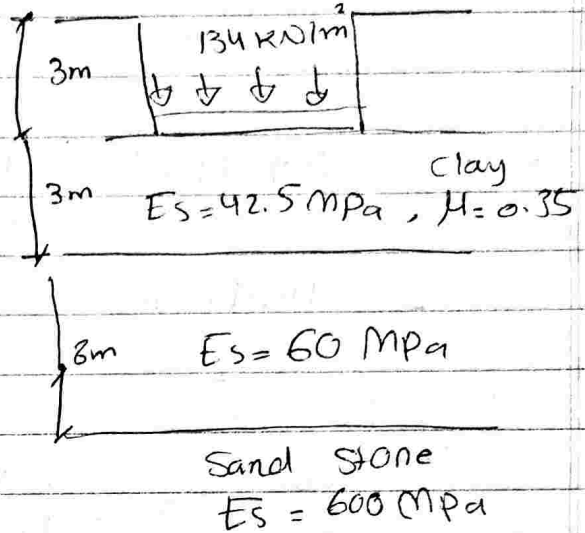 134 KN/m²
3m
Clay
3m
Es=42.5 mpa, μ= 0.35
8m
Es= 60 Mpa
Sand Stone
Es = 600 Mpa